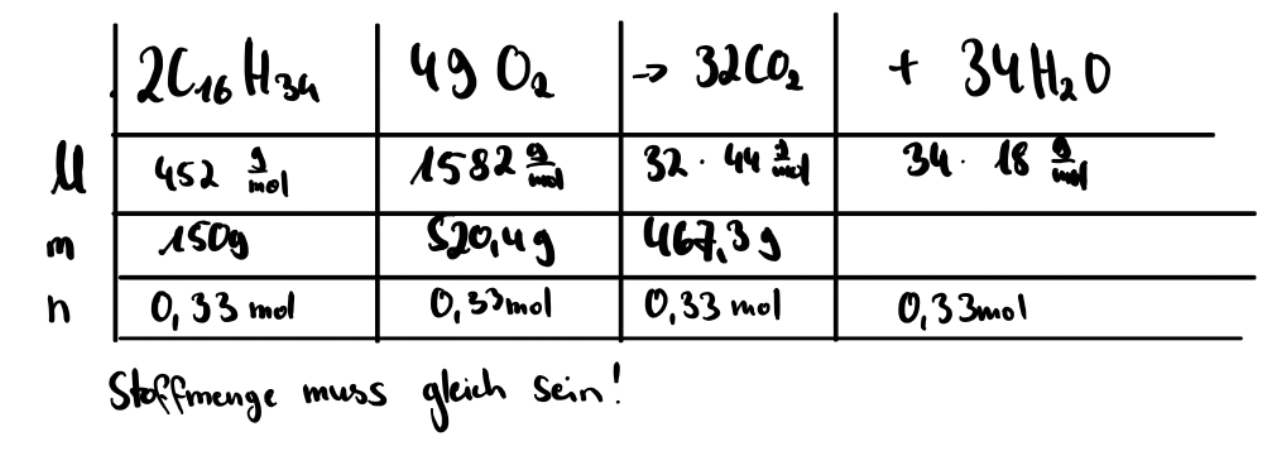 2C₁₆H₃₄ 49 O₂ → 32CO₂ + 34H₂O
M 452 g/mol 1582 g/mol 32 · 44 g/mol 34 · 18 g/mol
m 150g 520,4g 467,3g
n 0,33 mol 0,33mol 0,33 mol 0,33mol
Stoffmenge muss gleich sein!